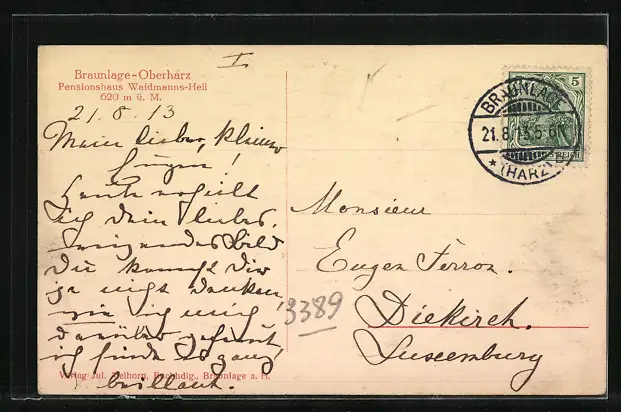 I
Braunlage-Oberharz
Pensionshaus Waidmanns-Heil
620 m ü. M.
21.8.13
Mein lieber, kleiner
Heute erhielt
ich dein liebes,
Bild
Du kannst Dir
ja nicht denken,
wie ich mich
darüber gefreut
ich finde es ganz
brillant.
Verlag Jul. Buchhdlg., Braunlage a. H.
BRAUNLAGE
21.8.13.5-6N.
* (HARZ)
5
REICH
Monsieur
Eugen Ferron.
Diekirch.
Luxemburg
3389